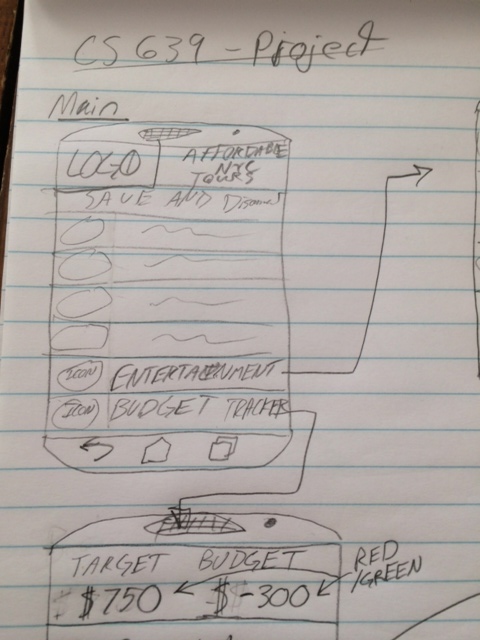 CS 639 - Project
Main
LOGO
AFFORDABLE
NYC
TOURS
SAVE AND Discount
ICON ENTERTAINMENT
ICON BUDGET TRACKER
TARGET BUDGET
$750 $-300
RED
/GREEN